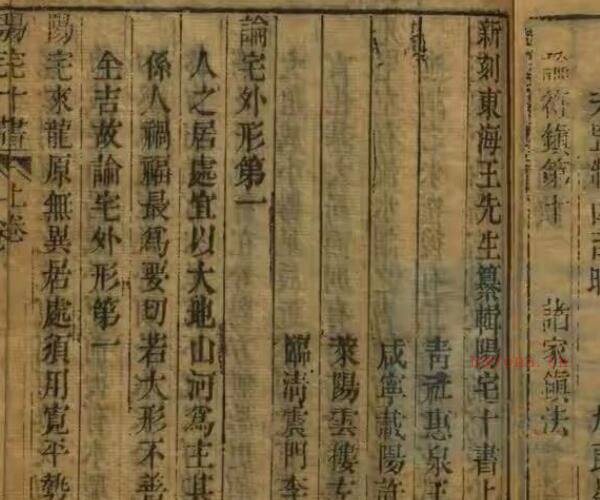 符鎮第十 諸家鎮法
新刻東海王先生纂輯陽宅十書上
青社惠泉王
咸寧載陽許
萊陽雲樓左
臨清雲門李
論宅外形第一
人之居處宜以大地山河為主其
係人禍福最為要切若大形不善
全吉故論宅外形第一
陽宅來龍原無異居處須用寬平勢
陽宅十書 上卷